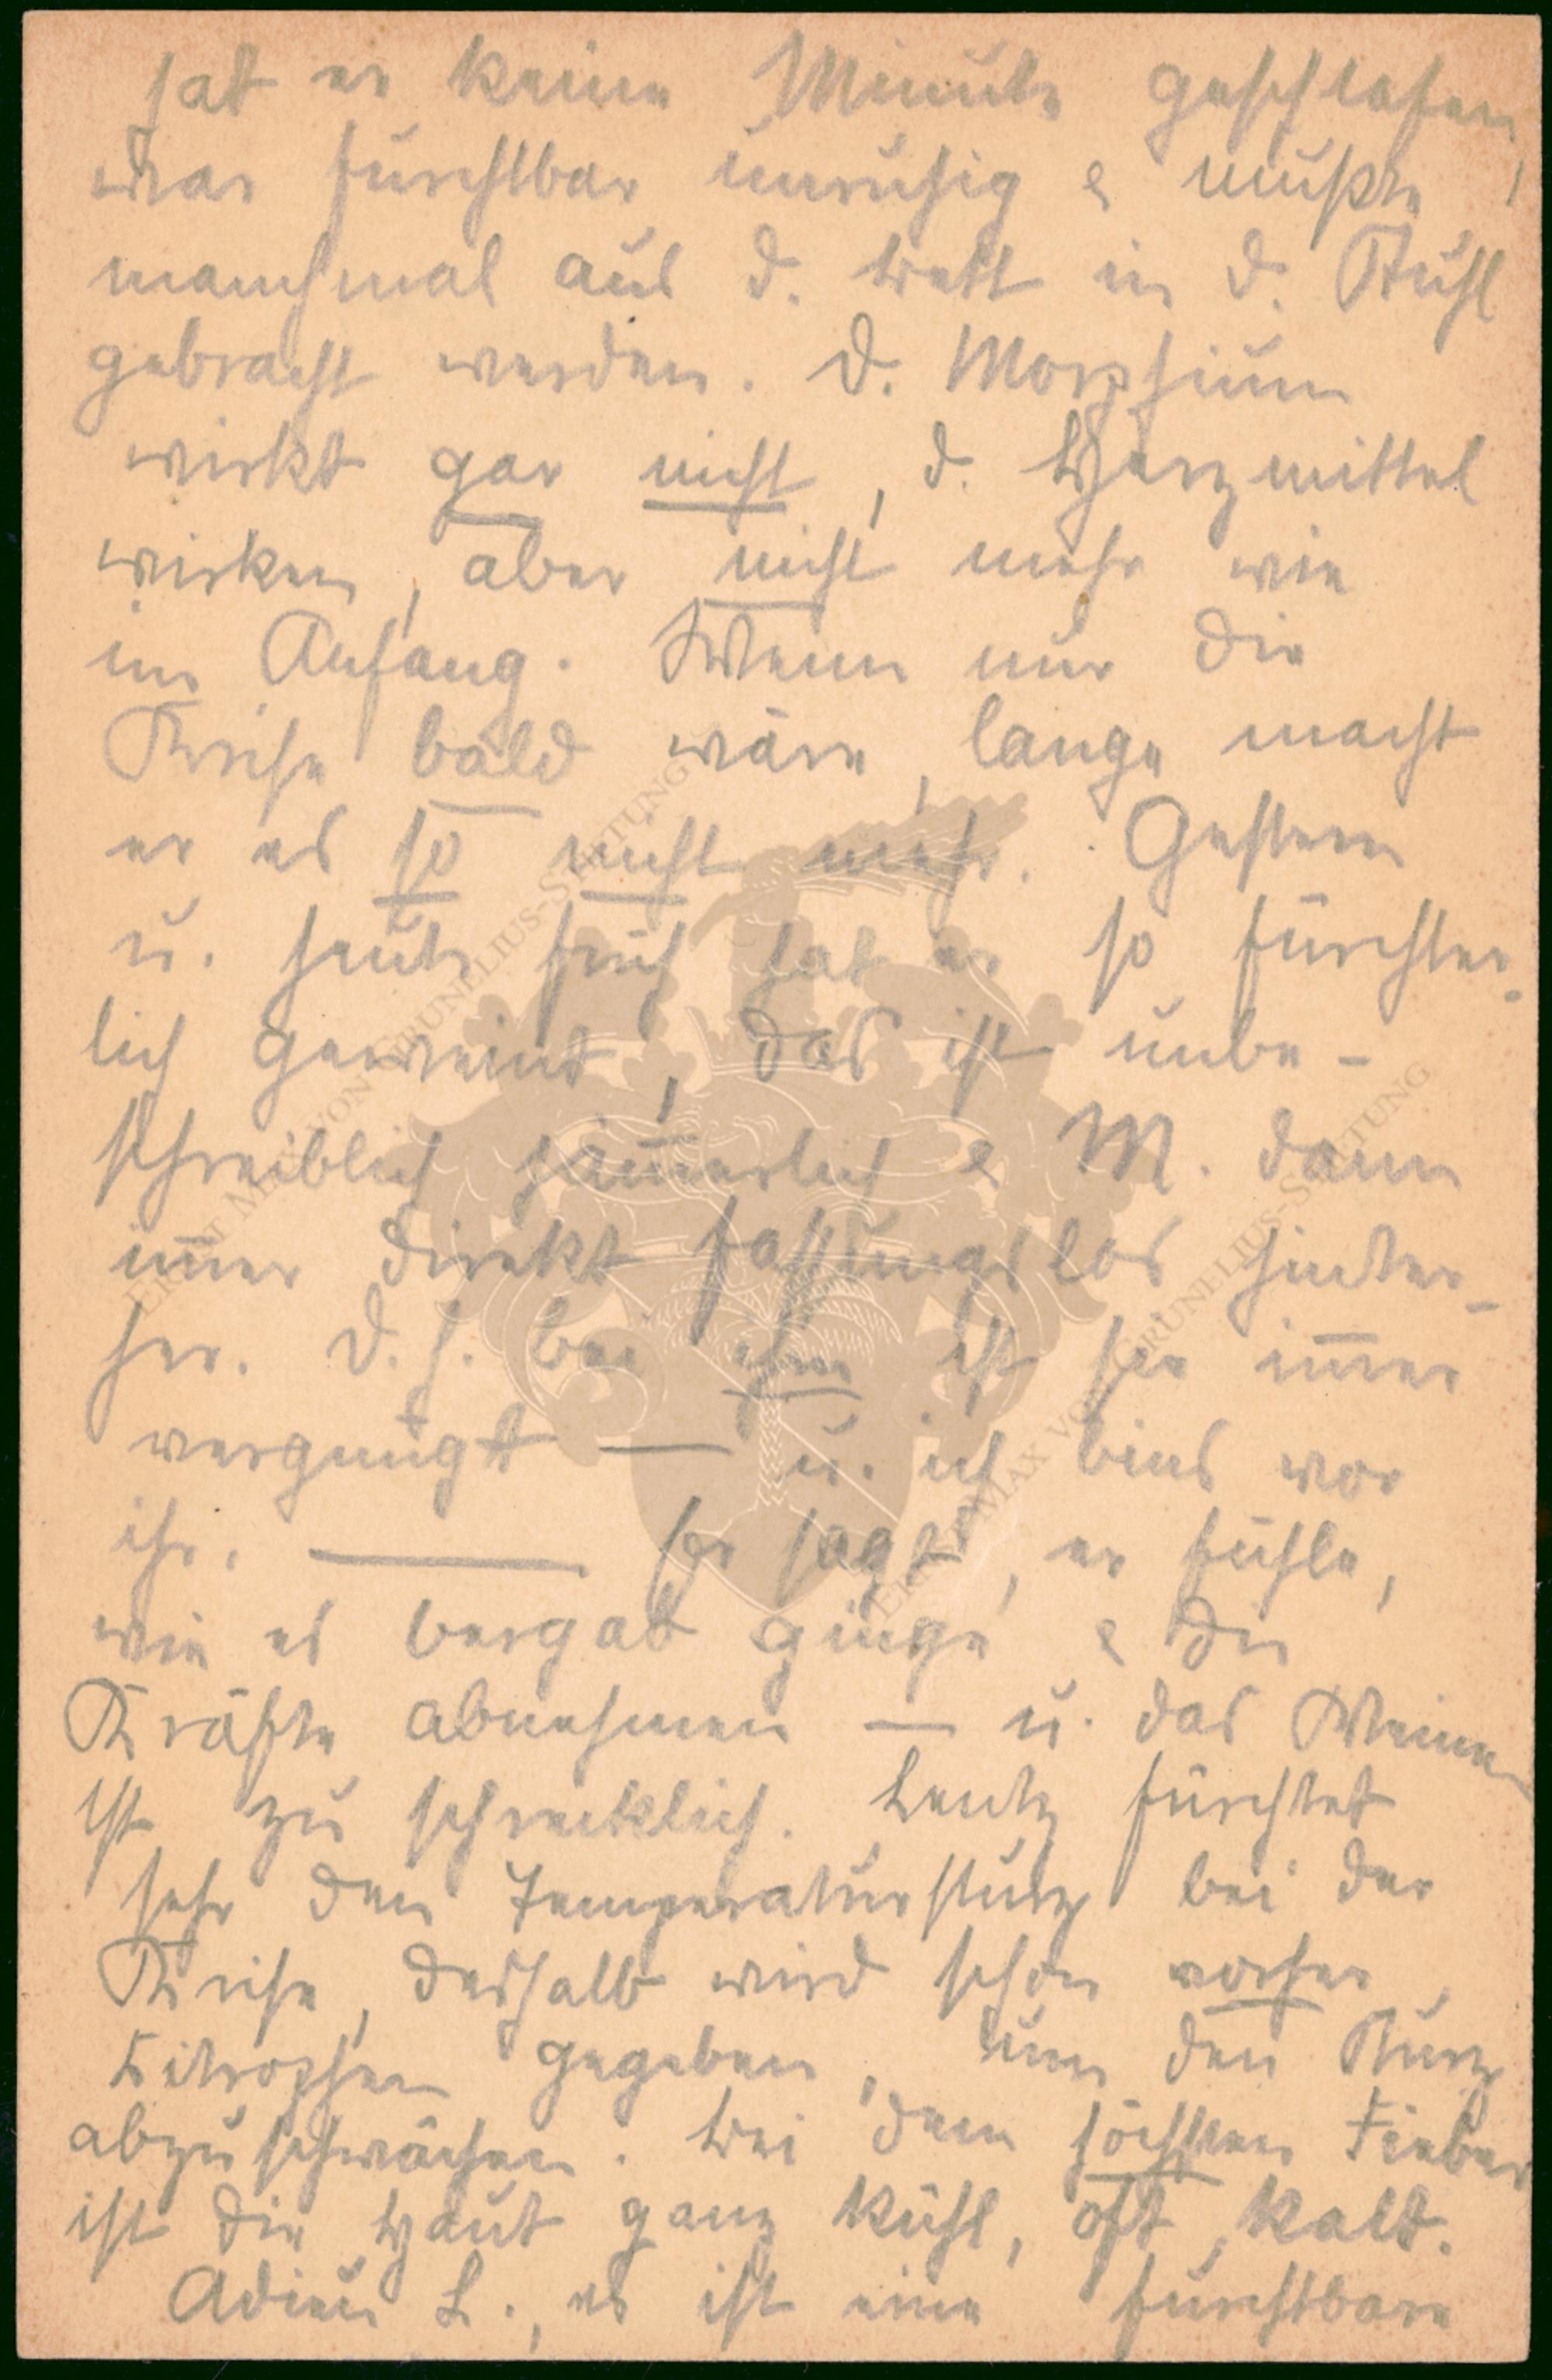 hat er keine Minute geschlafen,
war furchtbar unruhig & mußte
manchmal aus d. Bett in d. Stuhl
gebracht werden. D. Morphium
wirkt gar nicht, d. Herzmittel
wirken, aber nicht mehr wie
im Anfang. Wenn nur die
Krise bald wäre, lange macht
er es so nicht mehr. Gestern
u. heute früh hat er so fürchter-
lich geweint, das ist unbe-
schreiblich jam̅erlich & M. dann
im̅er direkt fassungslos hinter-
her. D. h. bei ihm ist sie im̅er
vergnügt — u. ich bins vor
ihr. — Er sagt, er fühle,
wie es bergab ginge & die
Kräfte abnehmen — u. das Weinen
ist zu schrecklich. Bentz fürchtet
sehr den Temperatursturz bei der
Krise, deshalb wird schon vorher
gegeben, um den Sturz
abzuschwächen. Bei dem höchsten Fieber
ist die Haut ganz kühl, oft kalt.
Adieu L., es ist eine furchtbare
ERNST MAX VON GRUNELIUS-STIFTUNG
ERNST MAX VON GRUNELIUS-STIFTUNG